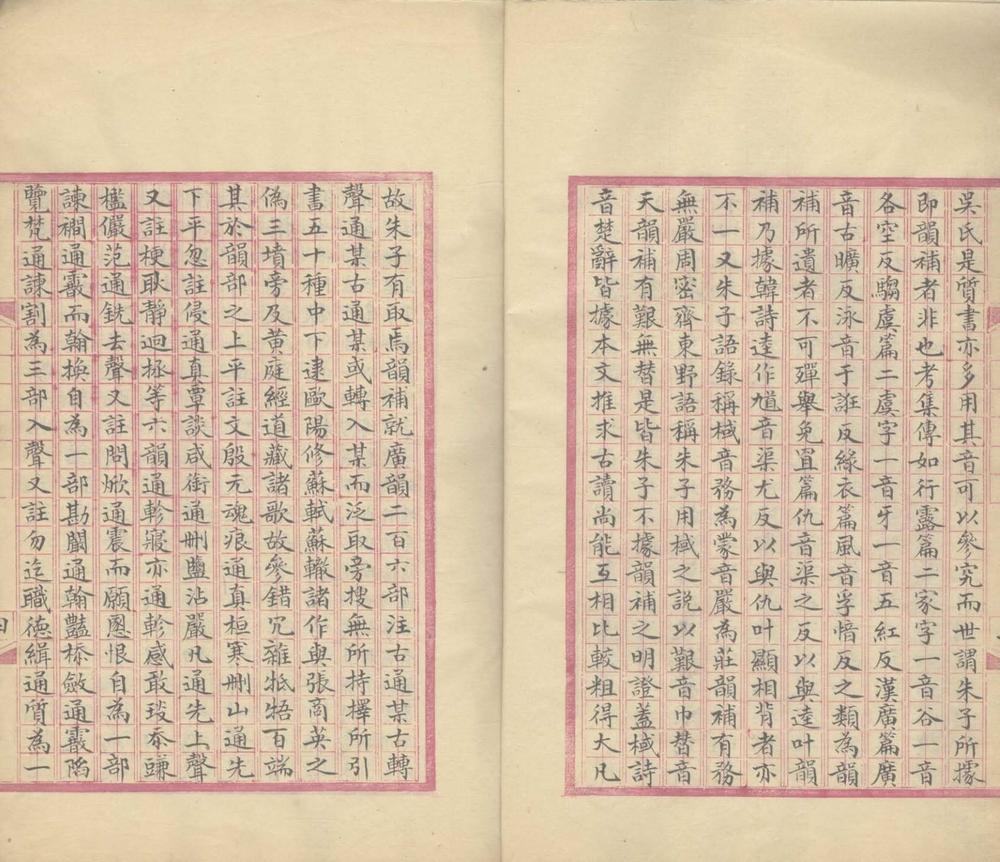 吳氏是質書亦多用其音可以參究而世謂朱子所據
即韻補者非也考集傳如行露篇二家字一音谷一音
各空反騶虞篇二虞字一音牙一音五紅反漢廣篇廣
音古曠反泳音于誑反綠衣篇風音孚愔反之類為韻
補所遺者不可殫舉兔罝篇仇音渠之反以與逵叶韻
補乃據韓詩逵作馗音渠尤反以與仇叶顯相背者亦
不一又朱子語錄稱棫音務為蒙音嚴為莊韻補有務
無嚴周密齊東野語稱朱子用棫之説以艱音巾替音
天韻補有艱無替是皆朱子不據韻補之明證蓋棫詩
音楚辭皆據本文推求古讀尚能互相比較粗得大凡
故朱子有取焉韻補就廣韻二百六部注古通某古轉
聲通某古通某或轉入某而泛取旁搜無所持擇所引
書五十種中下逮歐陽修蘇軾蘇轍諸作與張商英之
偽三墳旁及黄庭經道藏諸歌故參錯冗雜牴牾百端
其於韻部之上平註文殷元魂痕通真桓寒刪山通先
下平忽註侵通真覃談咸銜通刪鹽沾嚴凡通先上聲
又註梗耿靜迥拯等六韻通軫寑亦通軫感敢琰忝豏
檻儼范通銑去聲又註問焮通震而願慁恨自為一部
諫襇通霰而翰換自為一部勘闞通翰豔㮇斂通霰陷
覽梵通諫割為三部入聲又註勿迄職德緝通質為一
四